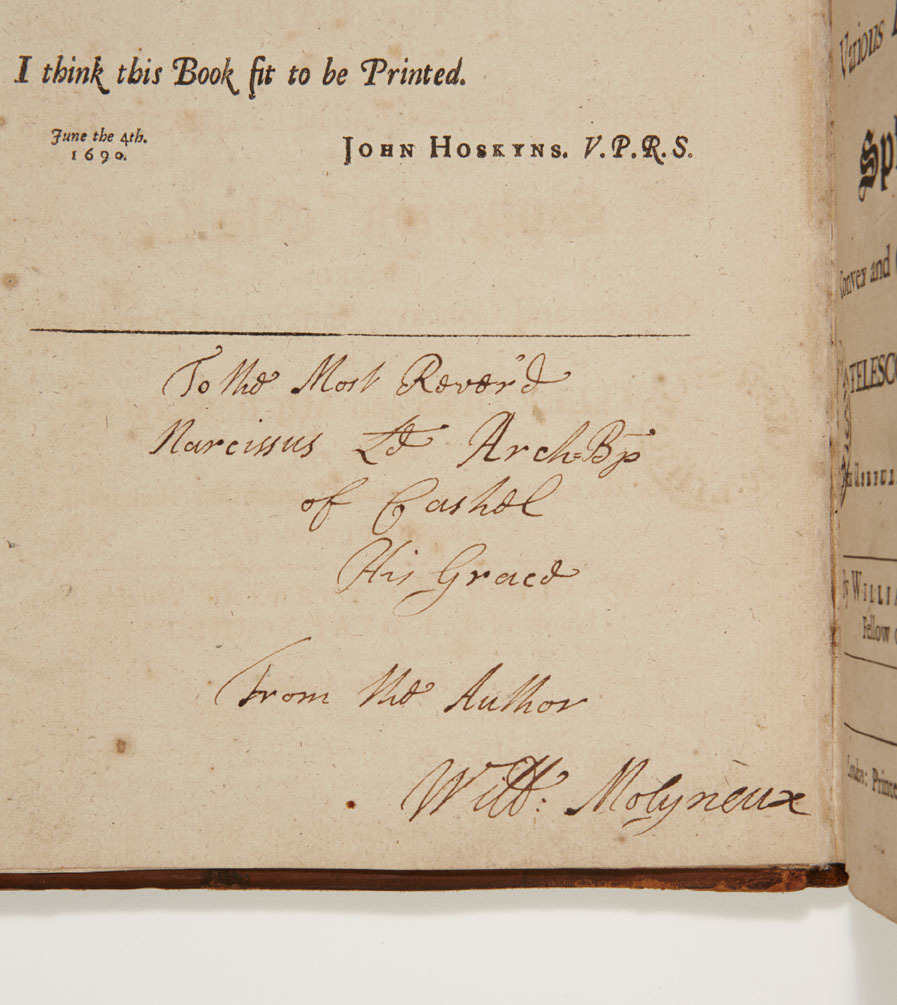 I think this Book fit to be Printed.
June the 4th.
1690.
JOHN HOSKYNS. V.P.R.S.
To the Most Rever'd
Narcissus Ld Arch-Bp
of Cashel
His Grace
From the Author
Will: Molyneux
Various
Sp
Convex and
TELESCO
USEFUL
By WILLIA
Fellow o
London: Printe